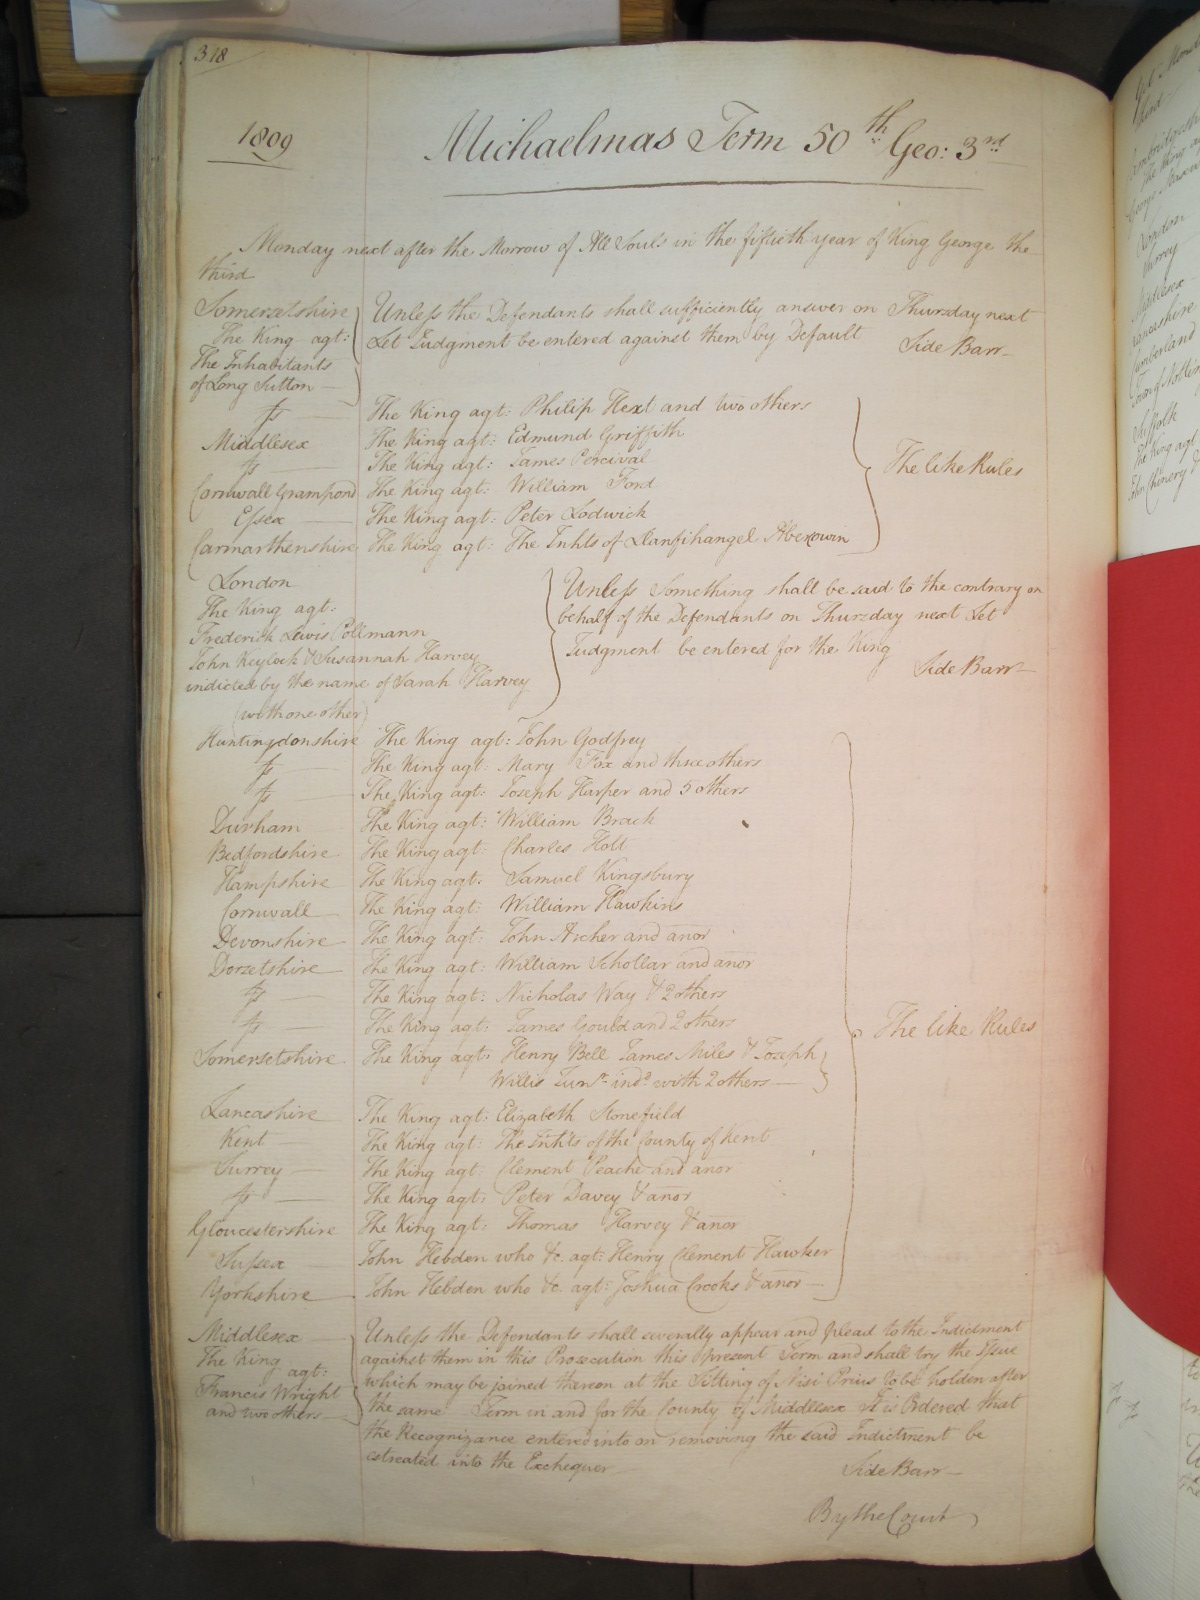 318
1809
Michaelmas Term 50th Geo: 3rd
Monday next after the Morrow of All Souls in the fiftieth year of King George the
third
Somersetshire
The King agt:
The Inhabitants
of Long Sutton
Unless the Defendants shall sufficiently answer on Thursday next
Let Judgment be entered against them by Default Side Barr
fs The King agt: Philip Hext and two others
Middlesex The King agt: Edmund Griffith
fs The King agt: James Percival
Cornwall Grampond The King agt: William Ford
Essex The King agt: Peter Lodwick
Carmarthenshire The King agt: The Inhts of Llanfihangel Aberowin
The like Rules
London
The King agt:
Frederick Lewis Collmann
John Keylock & Susannah Harvey
indicted by the name of Sarah Harvey
(with one other)
Unless Something shall be said to the contrary on
behalf of the Defendants on Thursday next Let
Judgment be entered for the King
Side Barr
Huntingdonshire The King agt: John Godfrey
fs The King agt: Mary Fox and three others
fs The King agt: Joseph Harper and 5 others
Durham The King agt: William Brack
Bedfordshire The King agt: Charles Holt
Hampshire The King agt: Samuel Kingsbury
Cornwall The King agt: William Hawkins
Devonshire The King agt: John Archer and anor
Dorsetshire The King agt: William Schollar and anor
fs The King agt: Nicholas Way & 2 others
fs The King agt: James Gould and 2 others
Somersetshire The King agt: Henry Bell James Miles & Joseph
Willis Junr. indd. with 2 others
Lancashire The King agt: Elizabeth Stonefield
Kent The King agt: The Inhts of the County of Kent
Surrey The King agt Clement Peache and anor
fs The King agt: Peter Davey & anor
Gloucestershire The King agt: Thomas Harvey & anor
Sussex John Hebden who &c. agt: Henry Clement Hawker
Yorkshire John Hebden who &c. agt: Joshua Crooks & anor
The like Rules
Middlesex
The King
agt:
Francis Wright
and two others
Unless the Defendants shall severally appear and plead to the Indictment
against them in this Prosecution this present Term and shall try the Issue
which may be joined thereon at the Sitting of Nisi Prius to be holden after
the same Term in and for the County of Middlesex It is Ordered that
the Recognizance entered into on removing the said Indictment be
estreated into the Exchequer
Side Barr
By the Court